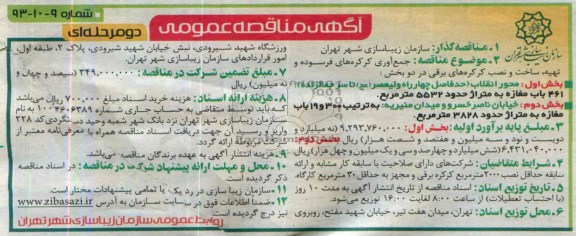 شماره ۹-۱۰-۹۳
آگهی مناقصه عمومی
دو مرحله‌ای
۱. مناقصه‌گذار: سازمان زیباسازی شهر تهران
۲. موضوع مناقصه: جمع‌آوری کرکره‌های فرسوده و
تهیه، ساخت و نصب کرکره‌های برقی در دو بخش:
بخش اول: محور انقلاب (حدفاصل چهارراه ولیعصر
۴۶۱ باب مغازه به متراژ حدود ۵۵۳۲ مترمربع.
بخش دوم: خیابان ناصرخسرو و میدان منیریه: به ترتیب ۱۲۰ و ۱۹۳ باب
مغازه به متراژ حدود ۳۸۲۸ مترمربع.
۳. مبلغ پایه برآورد اولیه: بخش اول: ۹،۲۹۳،۷۶۰،۰۰۰ (نه میلیارد و
دویست و نود و سه میلیون و هفتصد و شصت هزار) ریال بخش دوم:
۶،۴۳۱،۰۴۰،۰۰۰ (شش میلیارد و چهارصد و سی و یک میلیون و چهل هزار) ریال
۴. شرایط متقاضیان: شرکت‌های دارای صلاحیت با سابقه کار مشابه و ارائه
سابقه حداقل نصب ۲۰۰۰ مترمربع کرکره برقی و مجهز به حداقل ۲۰ مترمربع کارگاه.
۵. تاریخ توزیع اسناد: اسناد مناقصه از تاریخ انتشار آگهی به مدت ۱۰ روز
(با احتساب تعطیلات) از ساعت ۸:۰۰ لغایت ۱۶:۰۰ توزیع می‌شود.
۶. محل توزیع اسناد: تهران، میدان هفت تیر، خیابان شهید مفتح، روبروی
ورزشگاه شهید شیرودی، نبش خیابان شهید شیرودی، پلاک ۲، طبقه اول،
امور قراردادهای سازمان زیباسازی شهر تهران.
۷. مبلغ تضمین شرکت در مناقصه: ۳۴۹،۰۰۰،۰۰۰ (سیصد و چهل و
نه میلیون) ریال
۸. هزینه ارائه اسناد: هزینه خرید اسناد مبلغ ۷۰۰،۰۰۰ ریال می‌باشد
که باید توسط متقاضی به حساب جاری شماره ۱۰۰۴۶۰۶۳۸۹ به نام
سازمان زیباسازی شهر تهران نزد بانک شهر شعبه وحید دستگردی کد ۲۲۸
واریز و رسید آن جهت دریافت اسناد مناقصه همراه با معرفی‌نامه معتبر از
ارائه گردد.
۹. هزینه انتشار آگهی به عهده برندگان مناقصه می‌باشد.
۱۰. محل و مهلت ارائه پیشنهاد شرکت در مناقصه: در اسناد مناقصه
ذکر گردیده است
۱۱. سازمان زیباسازی در رد یک یا تمامی پیشنهادات مختار است.
۱۲. ضمنا اطلاعات فوق در سایت سازمان به آدرس www.zibasazi.ir
نیز درج گردیده است.
روابط عمومی سازمان زیباسازی شهر تهران